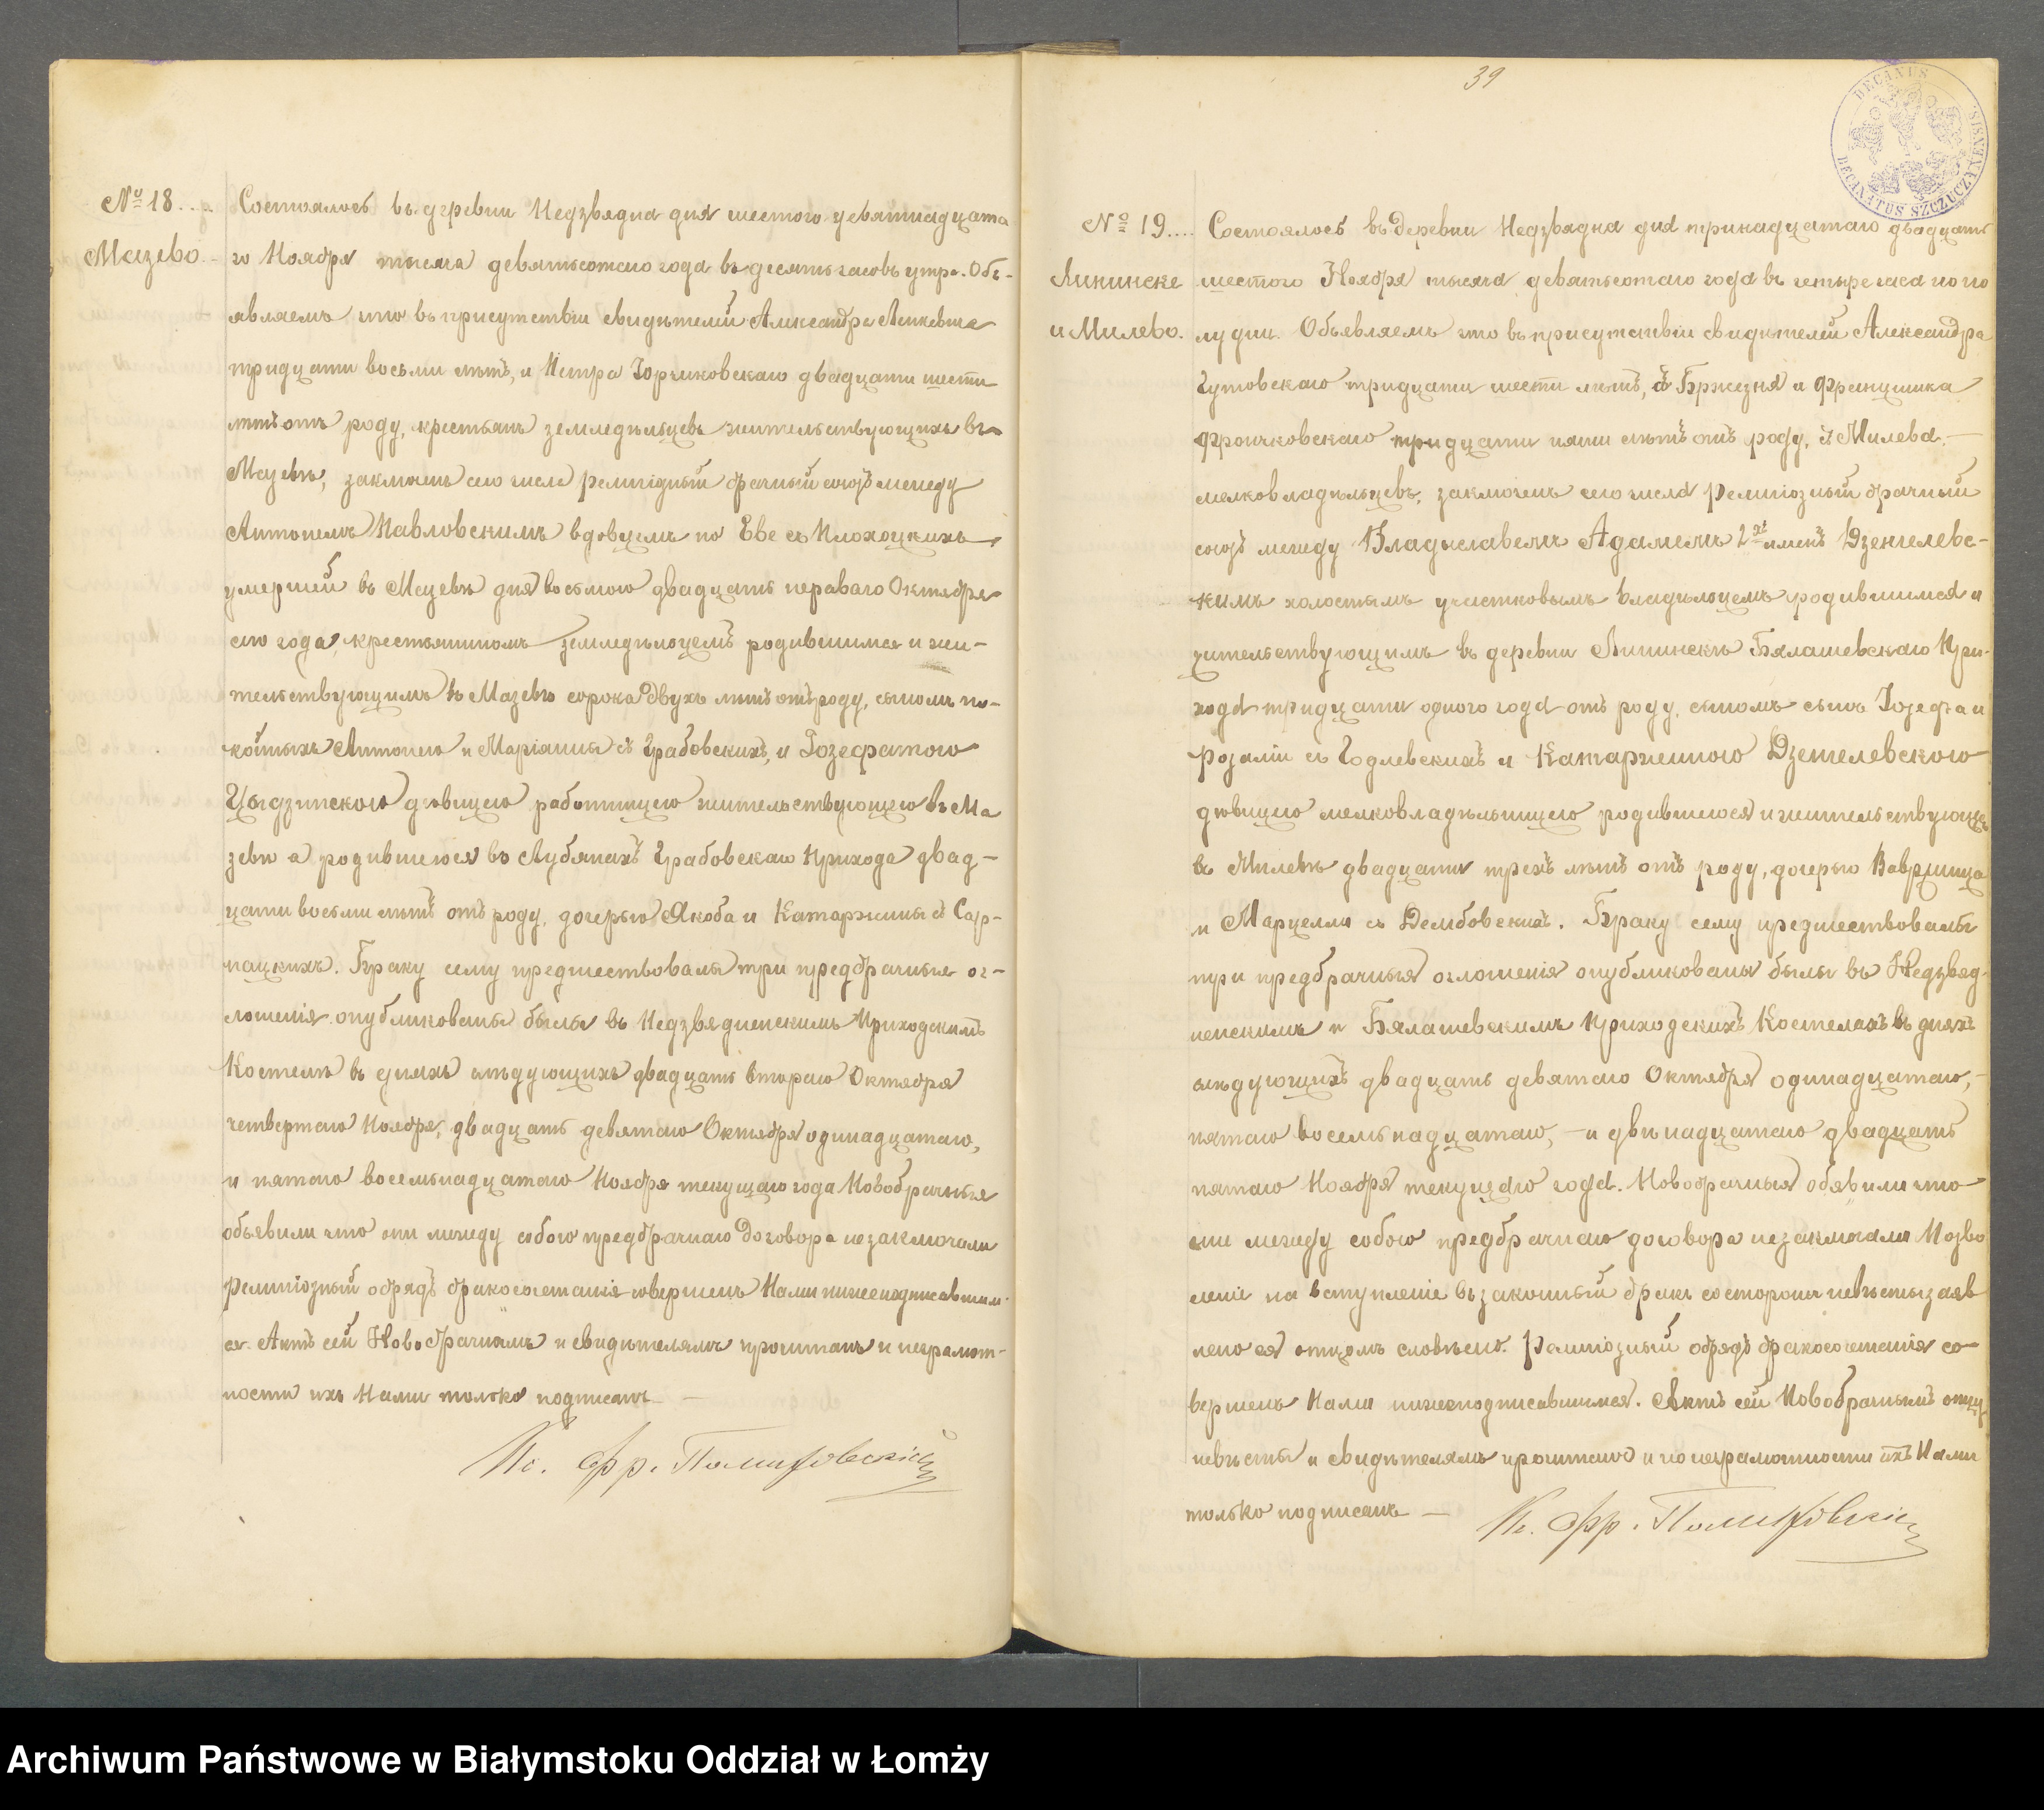 № 18....
Мазево.
Состоялось въ деревни Недзвядна дня шестого девятнадцата
го Ноября тысяча девятьсотаго года въ десять часовъ утра. Объ-
являемъ что въ присутствіи свидѣтелей Александра
тридцати восьми лѣтъ, и Петра двадцати шести
лѣтъ отъ роду, крестьянъ земледѣльцевъ жительствующихъ въ
Мазевѣ, заключенъ сего числа религіозный брачный союзъ между
Антонемъ Павловскимъ вдовцемъ по Еве съ Плохоцкихъ
умершей въ Мазевѣ дня восьмого двадцать перваго Октября
сего года, крестьяниномъ земледѣлоцемъ родившимся и жи-
тельствующимъ въ Мазевѣ сорока двухъ лѣтъ отъ роду, сыномъ по-
койныхъ Антонего и Маріанны съ Грабовскихъ, и Іозефатою
Цыдзинскою дѣвицею работницею жительствующею въ Ма
зевѣ а родившеюся въ Лубянахъ Грабовскаго Прихода двад-
цати восьми лѣтъ отъ роду, дочерью Якоба и Катаржины съ Сар-
нацкихъ. Браку сему предшествовалы три предбрачныя ог-
лошенія опубликованы былы въ Недзвядненскимъ Приходскимъ
Костелѣ въ дняхъ слѣдующихъ двадцать второго Октября
четвертаго Ноября, двадцать девятаго Октября одинадцатаго,
и пятаго восемьнадцатаго Ноября текущаго года Новобрачныя
объявили что они между собою предбрачнаго договора незаключали
Религіозный обрядъ бракосочетанія совершенъ Нами нижеподписавшим-
ся. Актъ сей Новобрачнымъ и свидѣтелямъ прочитанъ и неграмот-
ности ихъ Нами только подписанъ —
Кс. Фр.
39
DECANUS
DECANATUS SZCZUCZYNENSIS
№ 19....
Лининске
и Милево.
Состоялось въ деревни Недзвядна дня тринадцатаго двадцать
шестого Ноября тысяча девятьсотаго года въ четыре часа по по
лудни. Объявляемъ что въ присутствіи свидѣтелей Александра
Гутовскаго тридцати шести лѣтъ, съ Бржезня и Францишка
Фрончковскаго тридцати пяти лѣтъ отъ роду, съ Милева —
мелковладѣльцевъ, заключенъ сего числа религіозный брачный
союзъ между Владыславемъ Адамемъ 2хъ именъ Дзенгелевс-
кимъ холостымъ участковымъ владѣлоцемъ родившимся и
жительствующимъ въ деревни Лининскѣ Бялашевскаго При-
хода тридцати одного года отъ роду, сыномъ Іозефа и
Розаліи съ Годлевскихъ и Катаржиною Дзенгелевскою
дѣвицею мелковладѣльницею родившеюся и жительствующею
въ Милевѣ двадцати трехъ лѣтъ отъ роду, дочерью Вавржинца
и Марцелли съ Дембовскихъ. Браку сему предшествовалы
три предбрачныя оглошенія опубликованы былы въ Недзвяд-
ненскимъ и Бялашевскимъ Приходскихъ Костелахъ въ дняхъ
слѣдующихъ двадцать девятаго Октября одинадцатаго, —
пятаго восемьнадцатаго, — и двѣнадцатаго двадцать
пятаго Ноября текущаго года. Новобрачныя обявили что
они между собою предбрачнаго договора незаключали Позво
леніе на вступленіе въ законный бракъ со стороны невѣсты заяв
лено ея отцомъ словѣсно. Религіозный обрядъ бракосочетанія со-
вершенъ Нами нижеподписавшимся. Актъ сей Новобрачнымъ отцу
невѣсты и свидѣтелямъ прочитанъ и по неграмотности ихъ Нами
только подписанъ —
Кс. Фр.
Archiwum Państwowe w Białymstoku Oddział w Łomży